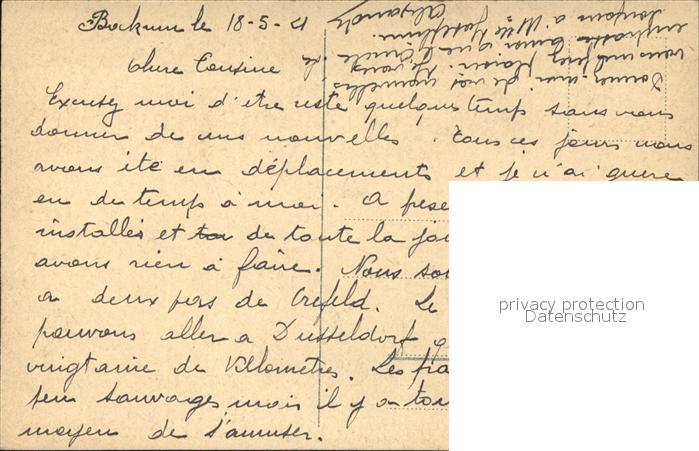 Bockum le 18-5-21
Chère Cousine
Excusez moi d'etre resté quelque temps sans vous
donner de mes nouvelles. Tous ces jours nous
avons ité en déplacements et je n'ai guere
eu de temps à moi. A prese
installés et de toute la jou
avons rien à faire. Nous so
a deux pas de Crefeld. Le
pouvons aller a Dusseldorf q
vingtaine de Kilomètres. Les
peu sauvages mais il y a tou
moyen de s'amuser.
Donnez-moi de vos nouvelles
vous me ferez plaisir. Je vous
embrasse
bonjour a Mlle Joséphine.
privacy protection
Datenschutz